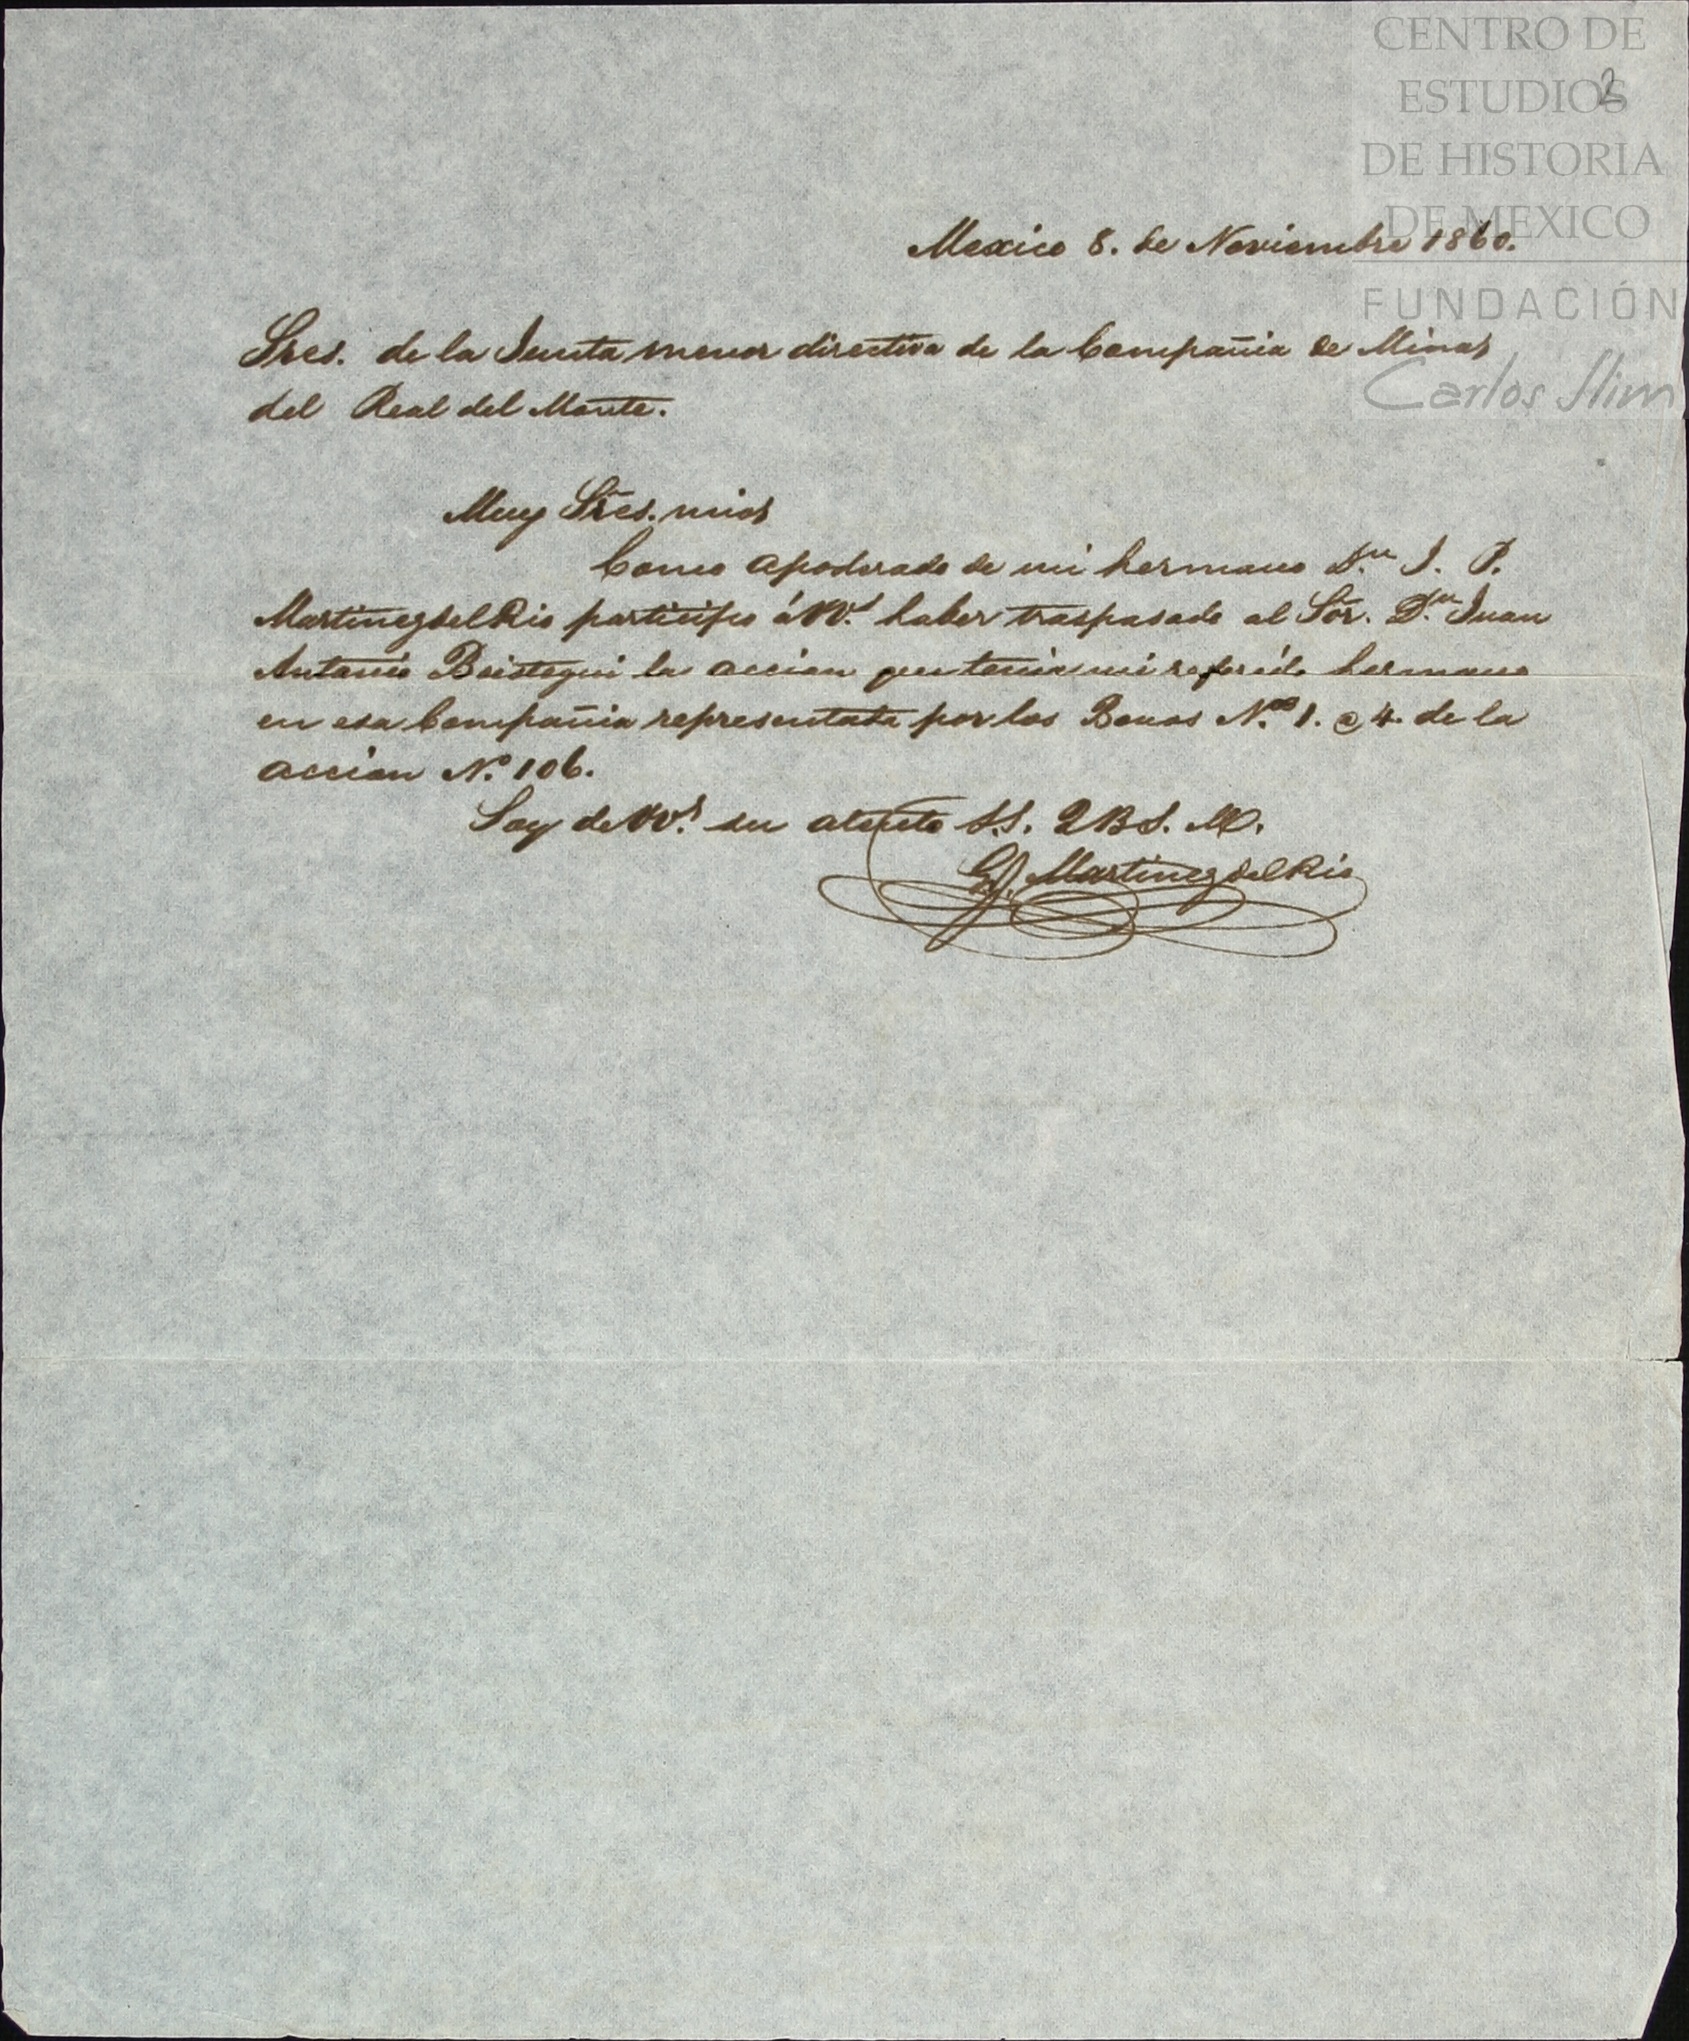 CENTRO DE
ESTUDIOS
DE HISTORIA
DE MEXICO
FUNDACIÓN
Carlos Slim
2
Mexico 8. de Noviembre 1860.
Sres. de la Junta menor directiva de la Compañia de Minas
del Real del Monte.
Muy Sres. mios
Como apoderado de mi hermano Dn. J. P.
Martinez del Rio participo á VVs. haber traspasado al Sor. Dn. Juan
Antonio Beistegui la accion que tenia mi referido hermano
en esa Compañia representada por los Bonos Nos. 1. a 4. de la
accion No. 106.
Soy de VVs. su atento S.S. Q B S. M.
G. Martinez del Rio